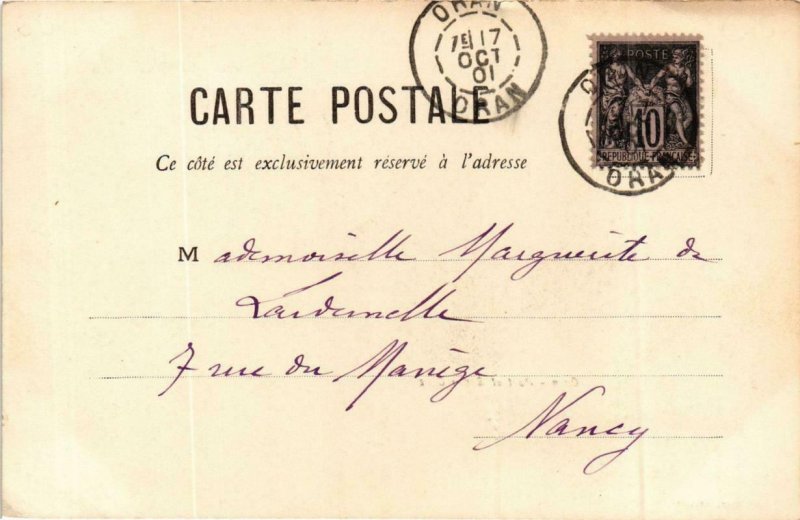 ORAN
1E 17
OCT
01
ORAN
POSTE
10
RÉPUBLIQUE FRANÇAISE
ORAN
CARTE POSTALE
Ce côté est exclusivement réservé à l'adresse
Mademoiselle Marguerite de
Lardemelle
7 rue du Manège
Nancy